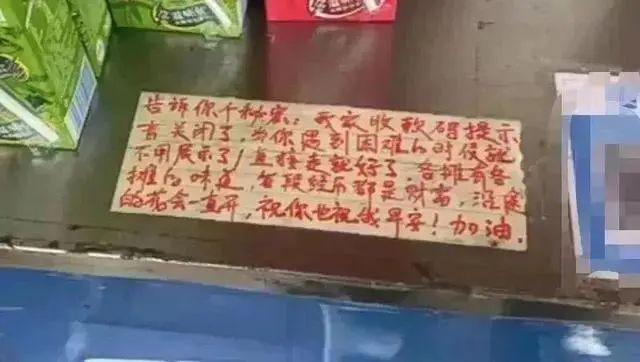 告诉你个秘密：我家收款码提示
音关闭了，当你遇到困难的时侯就
不用展示了，直接走就好了，各摊有各
摊的味道，每段经历都是财富，沿途
的花会一直开，祝你也祝我早安！加油.